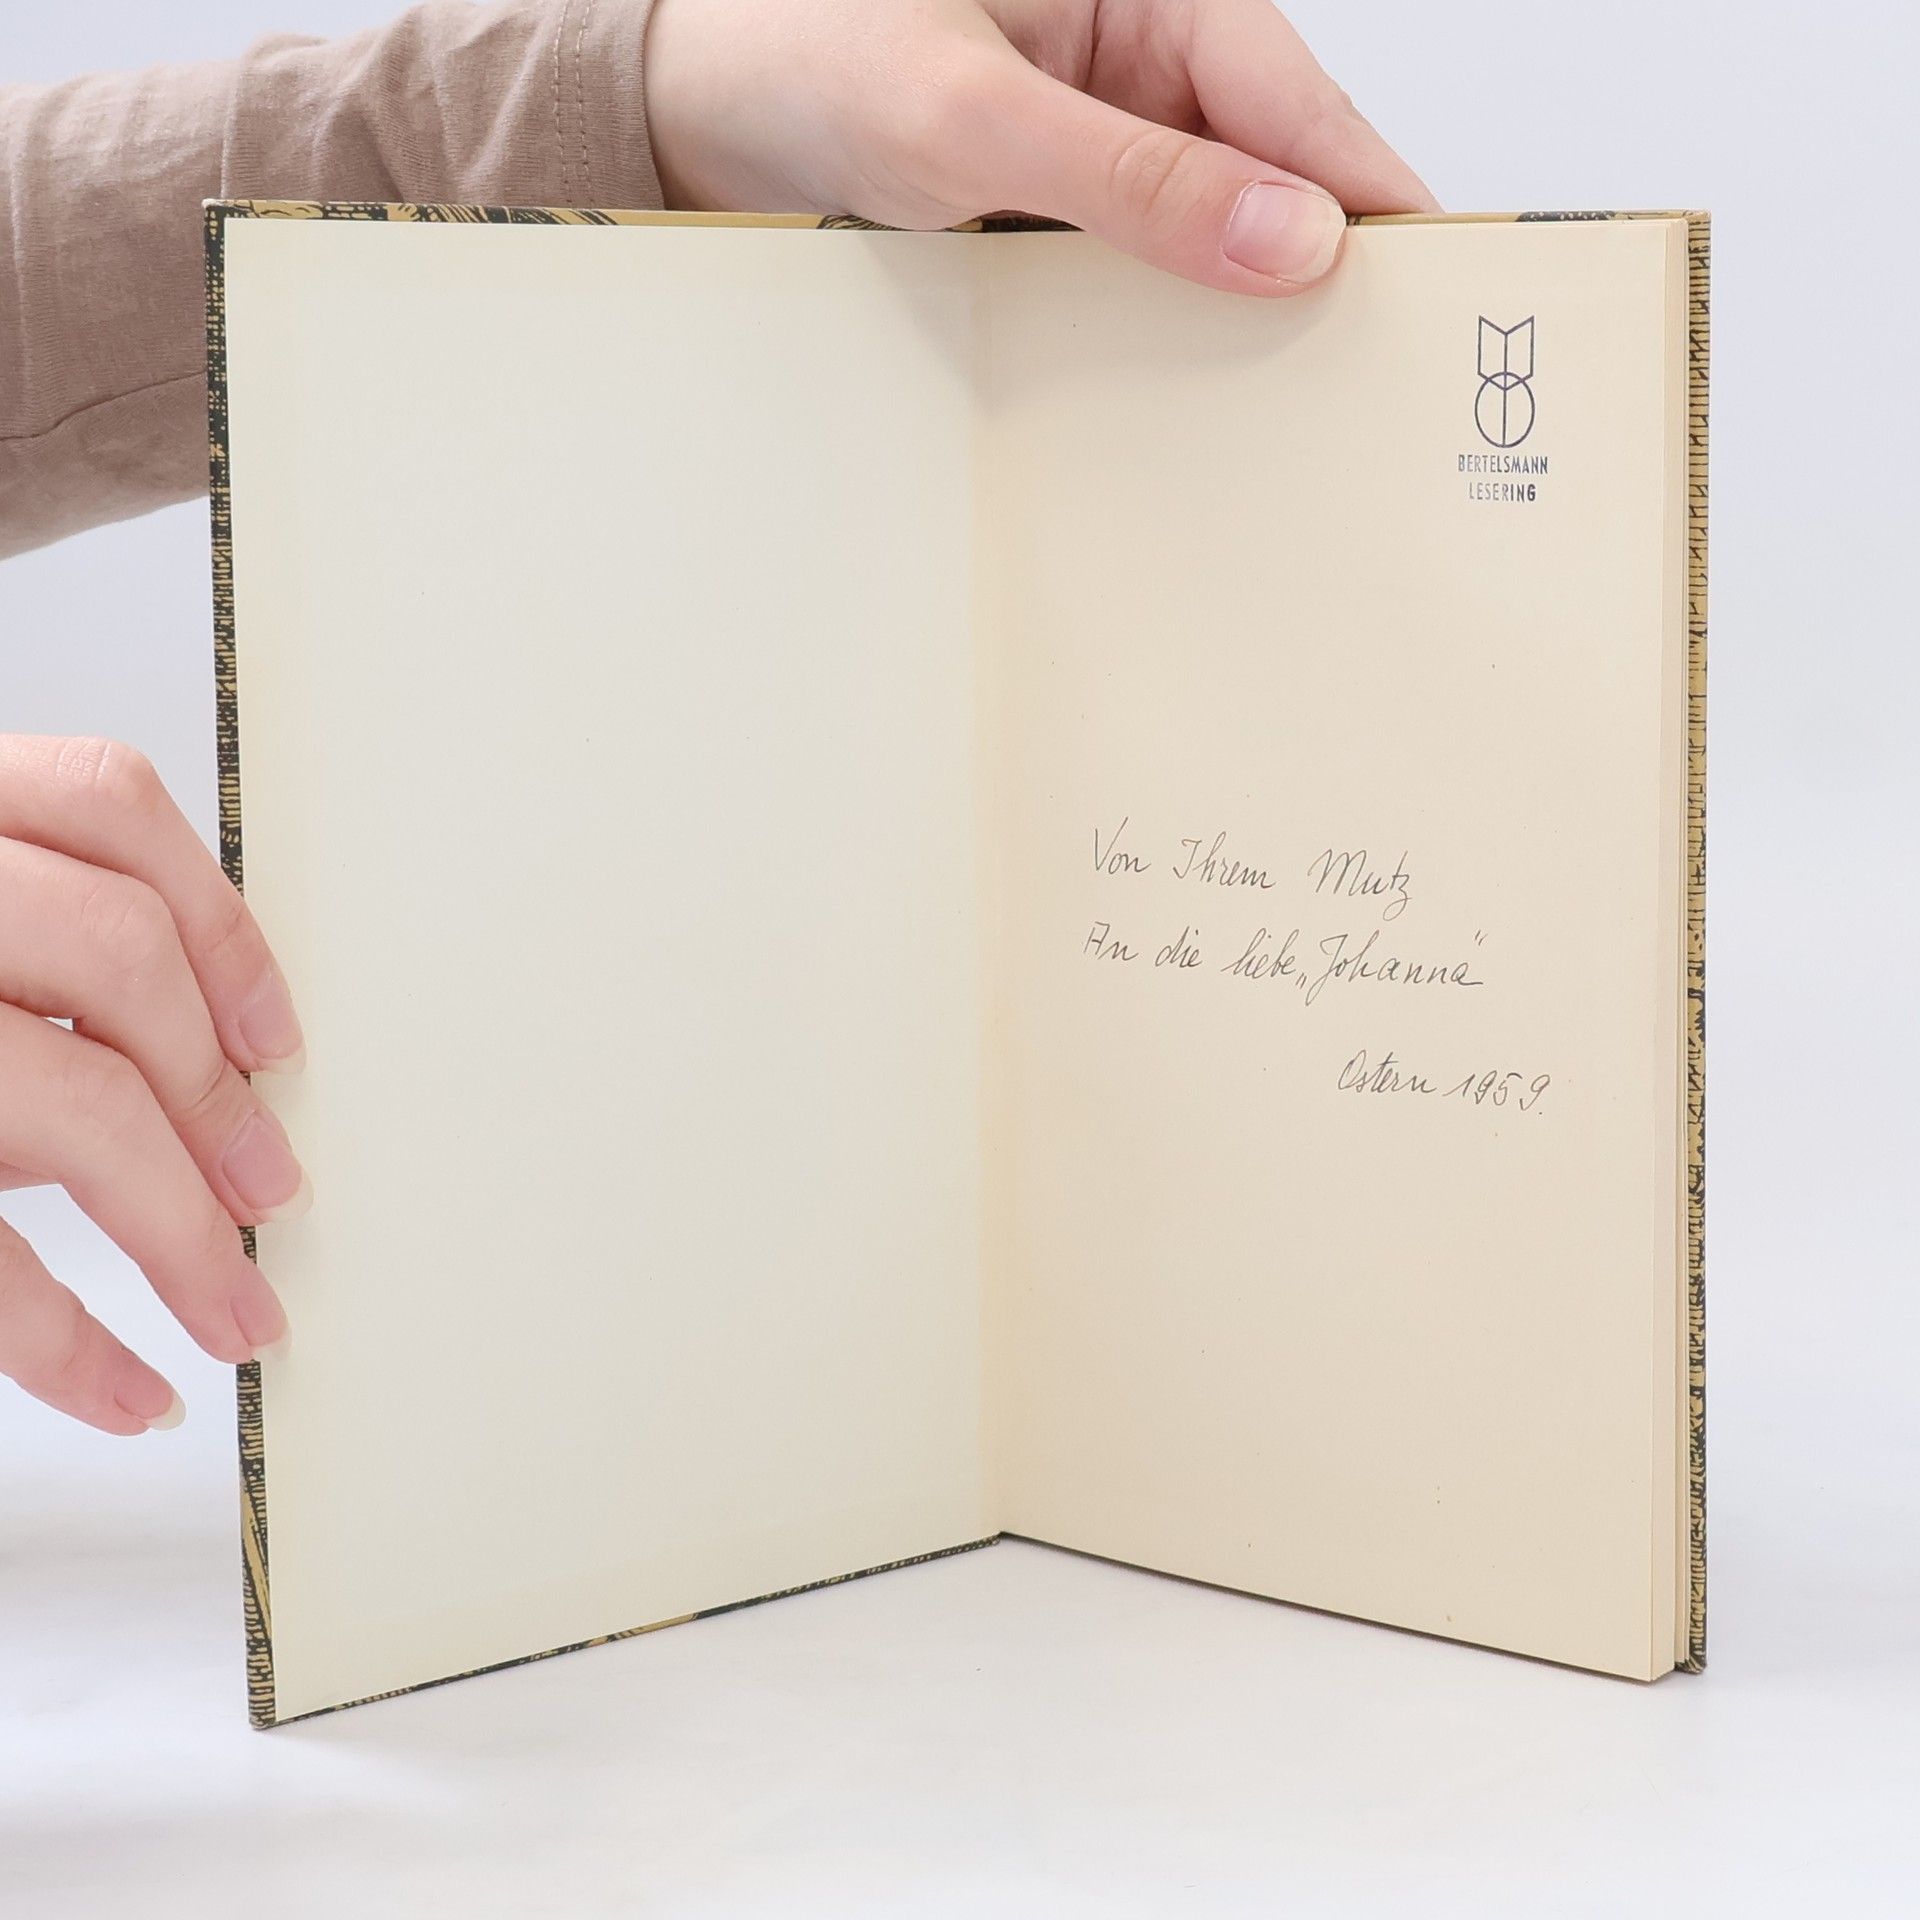 BERTELSMANN
LESERING
Von Ihrem Mutz
An die liebe „Johanna“
Ostern 1959.